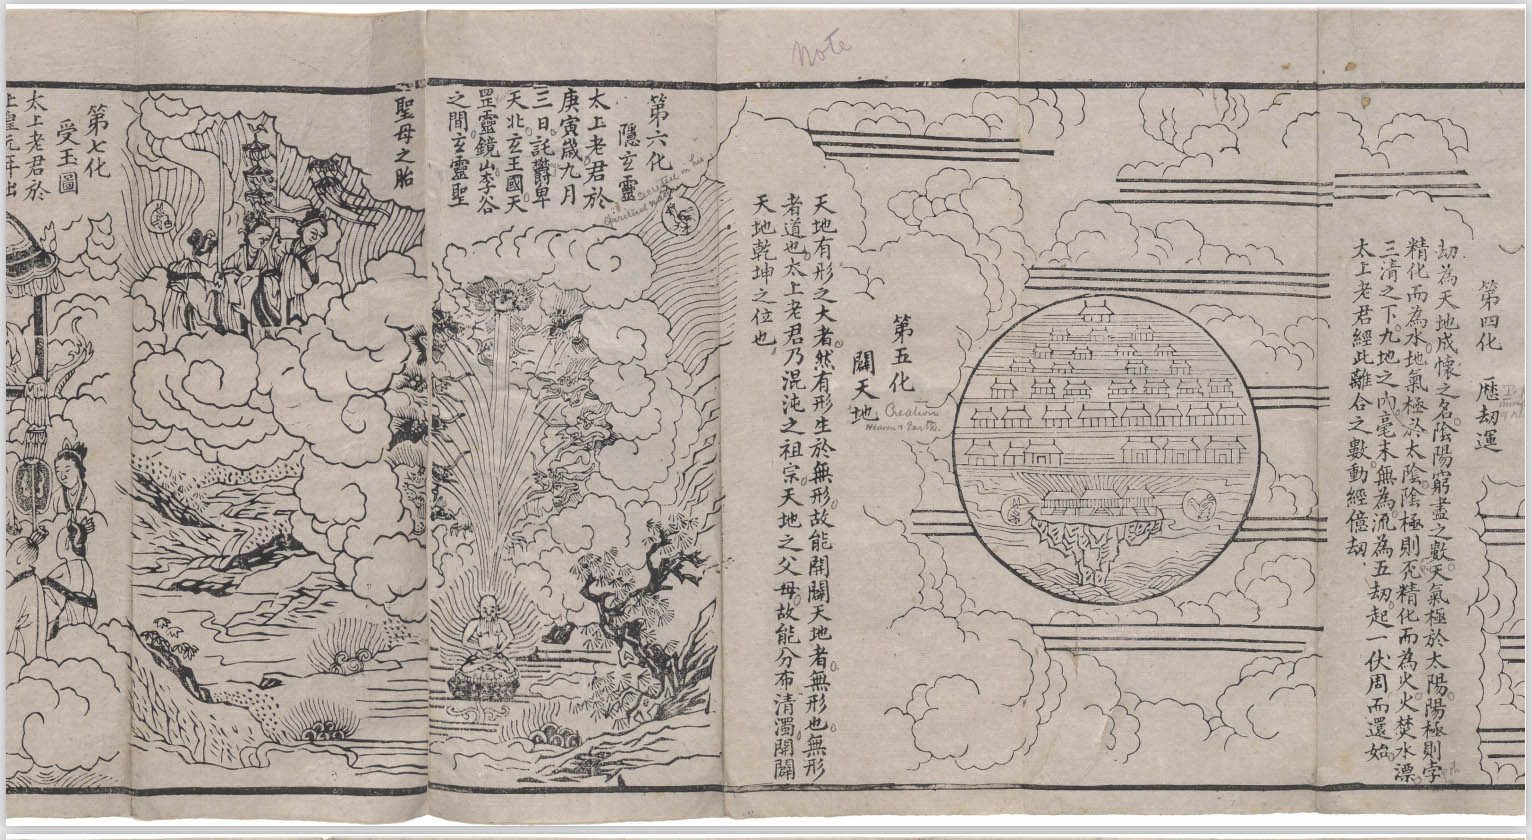 Note
第四化 厯劫運
劫為天地成懷之名。陰陽窮盡之數。天氣極於太陽。陽極則孛
精化而為水。地氣極於太陰。陰極則死精化而為火。火焚水漂。
三清之下。九地之內。毫末無為。流為五劫。起一伏周而還始。
太上老君經此離合之數。動經億劫。
第五化
闢天地
Creation
Heaven & Earth.
天地有形之大者。然有形生於無形。故能開闢天地者。無形也。無形
者道也。太上老君乃混沌之祖宗。天地之父母。故能分布清濁。開闢
天地乾坤之位也。
第六化
隱玄靈
Secreted in his
太上老君於
庚寅歲九月
三日。託欝卑
天北玄王國。天
罡靈鏡山。李谷
之間。玄靈聖
聖母之胎
第七化
受玉圖
太上老君於
上皇元年出